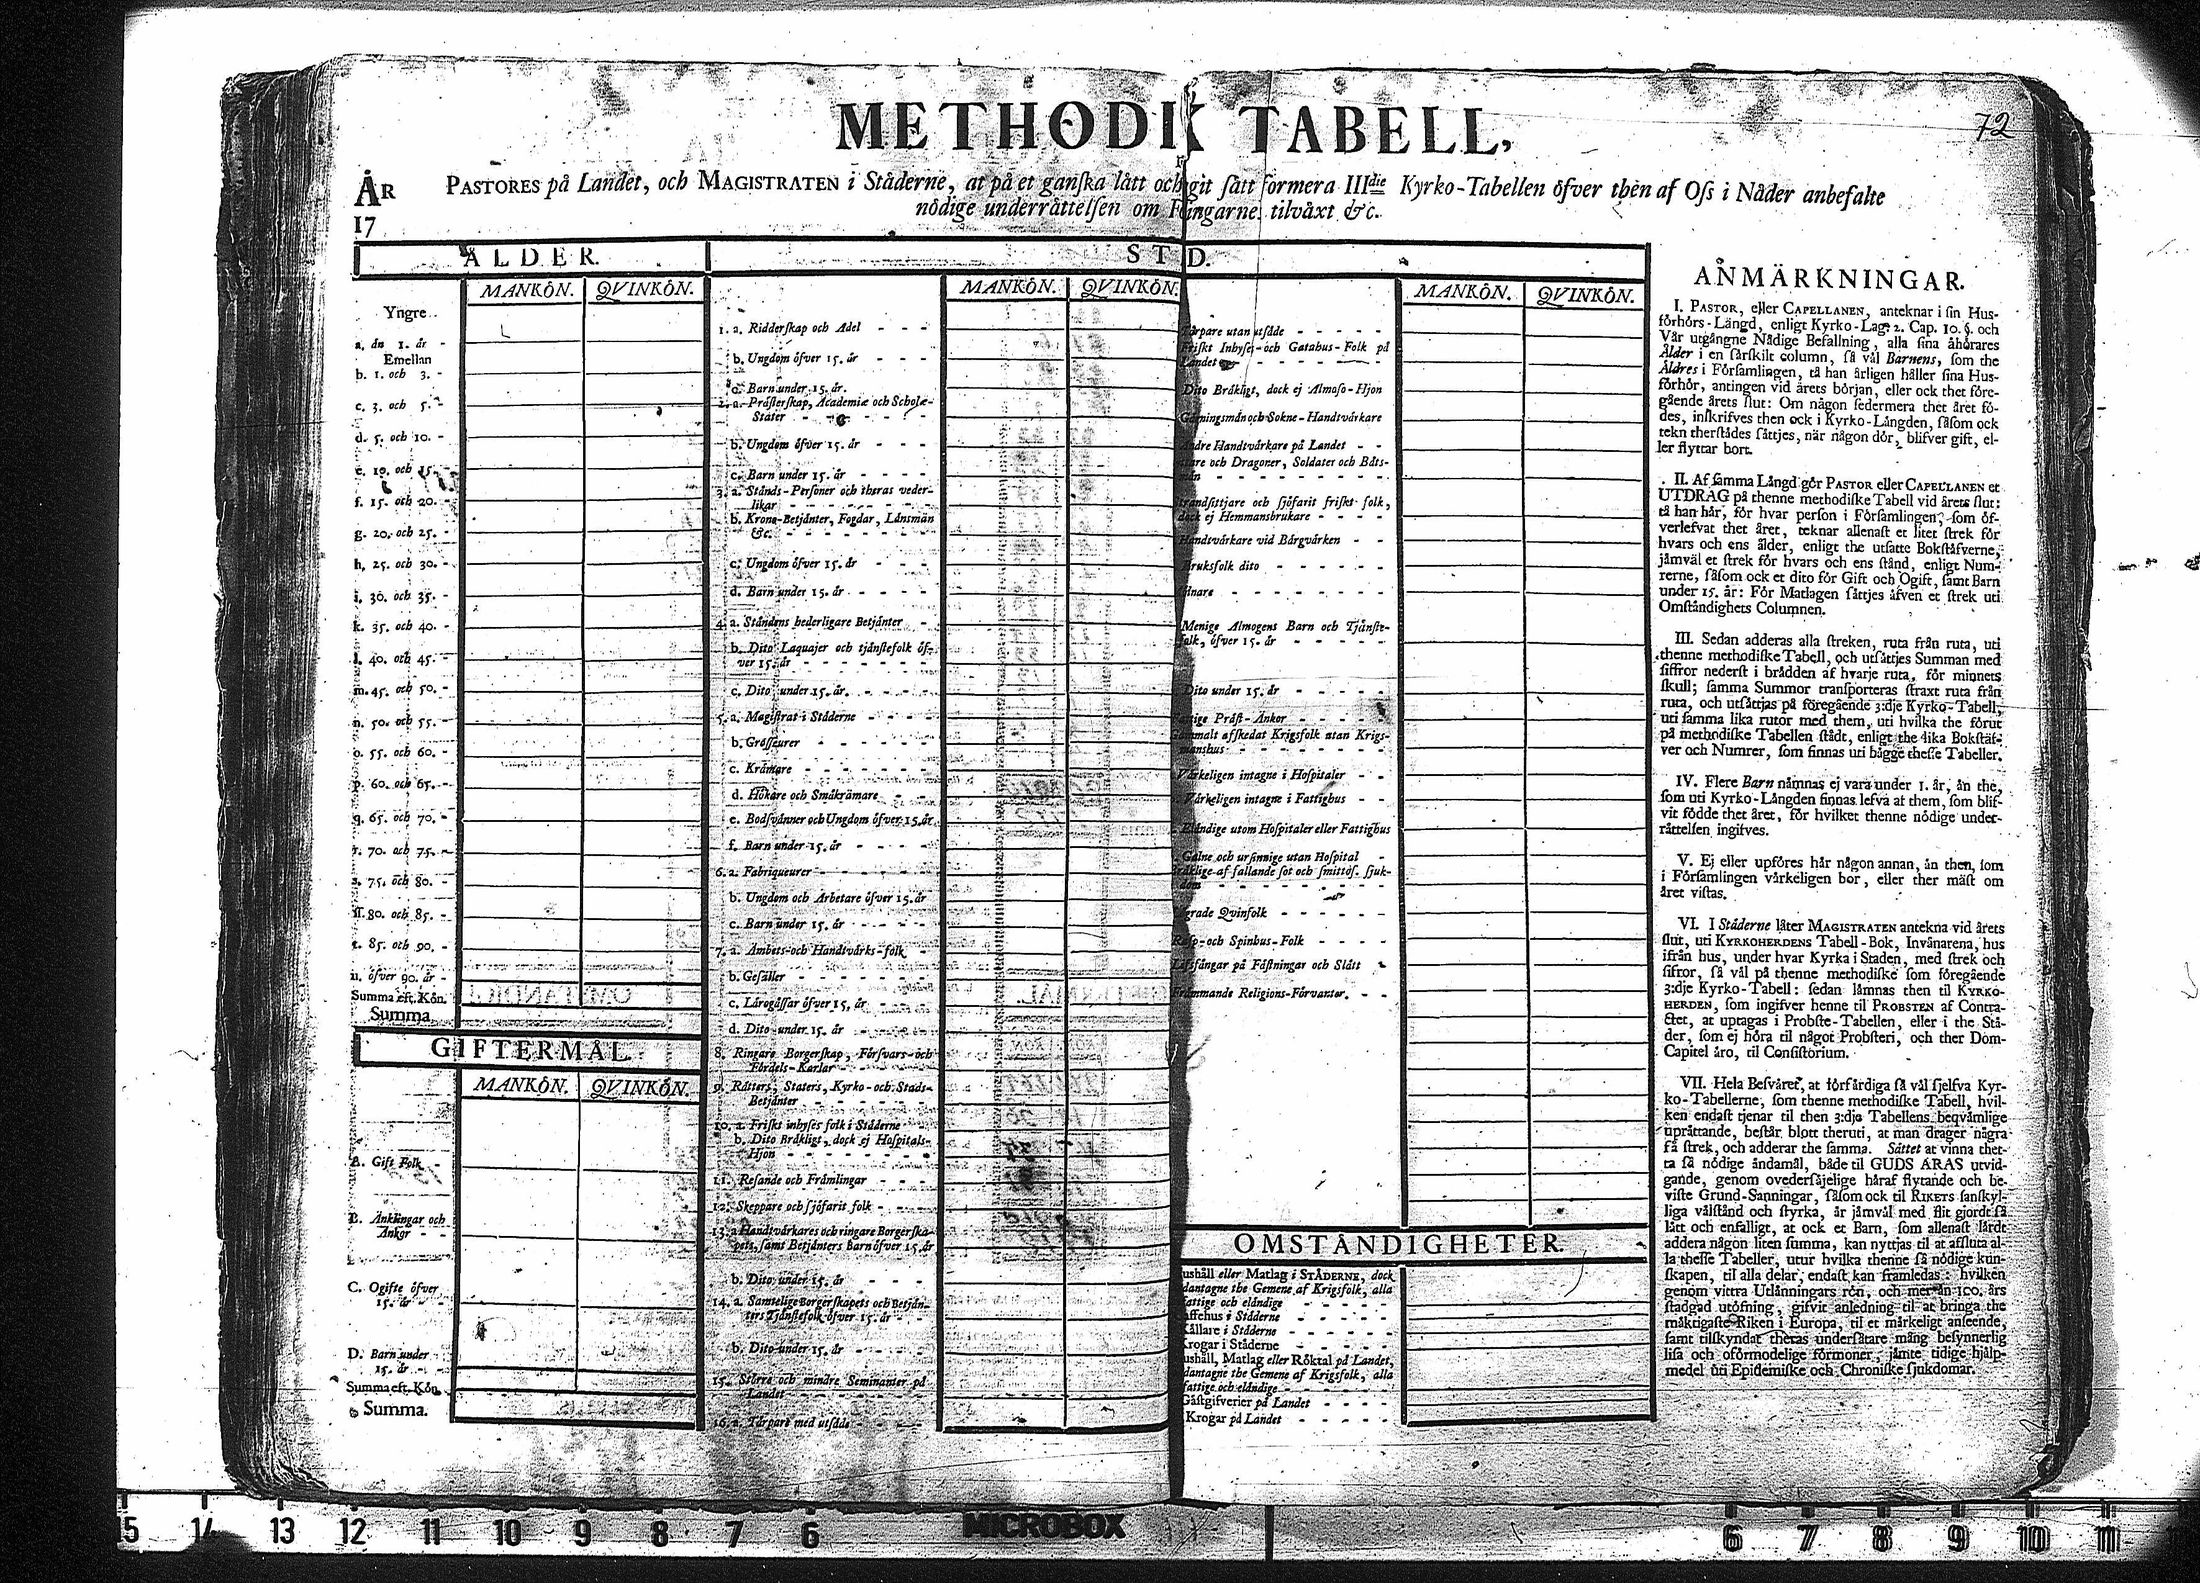 METHODIK TABELL,
72
ÅR
17
PASTORES på Landet, och MAGISTRATEN i Ståderne, at på et ganſka lått och git ſått formera IIIdie Kyrko-Tabellen öfver then af Oſs i Nåder anbefalte
nödige underråttelſen om ingarnes tilvåxt &c.
ÅLDER.
MANKÖN. QVINKÖN.
Yngre
a. ån 1. år -
Emellan
b. 1. och 3. -
c. 3. och 5. -
d. 5. och 10. -
e. 10. och 15. -
f. 15. och 20. -
g. 20. och 25. -
h. 25. och 30. -
i. 30. och 35. -
k. 35. och 40. -
l. 40. och 45. -
m. 45. och 50. -
n. 50. och 55. -
o. 55. och 60. -
p. 60. och 65. -
q. 65. och 70. -
r. 70. och 75. -
s. 75. och 80. -
ſſ. 80. och 85. -
t. 85. och 90. -
u. öfver 90. år -
Summa eft. Kön.
Summa
GIFTERMÅL.
MANKÖN. QVINKÖN.
A. Gift Folk -
B. Änklingar och
Änkor - -
C. Ogifte öfver
15. år - -
D. Barn under
15. år - -
Summa eft. Kön.
Summa.
ST D.
MANKÖN. QVINKÖN.
1. a. Ridderſkap och Adel - - -
b. Ungdom öfver 15. år - - -
c. Barn under 15. år.
2. a. Pråſterſkap, Academiæ och Scholæ-
Stater - - - -
b. Ungdom öfver 15. år - - -
c. Barn under 15. år - - - -
3. a. Stånds-Perſoner och theras veder-
likar - - - - - -
b. Krono-Betjånter, Fogdar, Lånsmån
&c. - - - - - - -
c. Ungdom öfver 15. år - - - -
d. Barn under 15. år - - - -
4. a. Ståndens hederligare Betjånter -
b. Dito Laquajer och tjånſtefolk öf-
ver 15. år - - - - - -
c. Dito under 15. år. - - - -
5. a. Magiſtrat i Ståderne - - - -
b. Groſſeurer - - - - -
c. Kråmare - - - - - -
d. Hökare och Småkråmare - -
e. Bodſvånner och Ungdom öfver 15. år
f. Barn under 15. år - - - -
6. a. Fabriqueurer - - - - -
b. Ungdom och Arbetare öfver 15. år
c. Barn under 15. år - - - -
7. a. Ämbets-och Handtvårks-folk -
b. Geſåller - - - - - -
c. Lårogåſſar öfver 15. år - - -
d. Dito under 15. år - - - -
8. Ringare Borgerſkap, Förſvars-och
Fördels-Karlar - - - -
9. Råtters, Staters, Kyrko-och Stads-
Betjånter - - - - - -
10. a. Friſkt inhyſes folk i Ståderne - -
b. Dito Bråkligt, dock ej Hoſpitals-
Hjon - - - - - - -
11. Reſande och Fråmlingar - - -
12. Skeppare och ſjöfarit folk - - -
13. a. Handtvårkares och ringare Borgerſka-
pets, ſamt Betjånters Barn öfver 15. år
b. Dito under 15. år - - -
14. a. Samtelige Borgerſkapets och Betjån-
ters Tjånſtefolk öfver 15. år - -
b. Dito under 15. år - - -
15. Större och mindre Seminanter på
Landet - - - - -
16. a. Torpare med utſåde - - -
MANKÖN. QVINKÖN.
Torpare utan utſåde - - - - -
Friſkt Inhyſes-och Gatahus-Folk på
Landet - - - - - -
Dito Bråkligt, dock ej Almoſo-Hjon
Gerningsmån och Sokne-Handtvårkare
Andre Handtvårkare på Landet - -
tare och Dragoner, Soldater och Båts-
mån - - - - - -
trandſittjare och ſjöfarit friſkt folk,
dock ej Hemmansbrukare - - - -
Handtvårkare vid Bårgvårken - -
Bruksfolk dito - - - - -
Menige Almogens Barn och Tjånſte-
folk, öfver 15. år - - - - -
Dito under 15. år - - - - -
Fattige Pråſt-Änkor - - - -
Gammalt afſkedat Krigsfolk utan Krigs-
manshus - - - - - -
Vårkeligen intagne i Hoſpitaler - -
Vårkeligen intagne i Fattighus - -
Elåndige utom Hoſpitaler eller Fattighus
Galne och urſinnige utan Hoſpital -
bråklige af fallande ſot och ſmittoſ. ſjuk-
dom - - - - - -
grade Qvinfolk - - - - - -
Raſp-och Spinhus-Folk - - - -
Lifsfångar på Fåſtningar och Slått -
Fråmmande Religions-Förvanter. - -
OMSTÅNDIGHETER.
ushåll eller Matlag i STÅDERNE, dock
dantagne the Gemene af Krigsfolk, alla
fattige och elåndige - - - - -
affehus i Ståderne - - - - -
Kållare i Ståderne - - - - -
Krogar i Ståderne - - - - -
ushåll, Matlag eller Röktal på Landet,
dantagne the Gemene af Krigsfolk, alla
fattige och elåndige - - - - -
Gåſtgifverier på Landet - - - -
Krogar på Landet - - - - -
ANMÄRKNINGAR.
I. PASTOR, eller CAPELLANEN, anteknar i ſin Hus-
förhörs-Långd, enligt Kyrko-Lag: 2. Cap. 10. §. och
Vår utgångne Nådige Befallning, alla ſina åhörares
Ålder i en ſårſkilt column, ſå vål Barnens, ſom the
Äldres i Förſamlingen, tå han årligen håller ſina Hus-
förhör, antingen vid årets början, eller ock thet före-
gående årets ſlut: Om någon ſedermera thet året fö-
des, inſkrifves then ock i Kyrko-Långden, ſåſom ock
tekn therſtådes ſåttjes, når någon dör, blifver gift, el-
ler flyttar bort.
II. Af ſamma Långd gör PASTOR eller CAPELLANEN et
UTDRAG på thenne methodiſke Tabell vid årets ſlut:
tå han hår, för hvar perſon i Förſamlingen, ſom öf-
verlefvat thet året, teknar allenaſt et litet ſtrek för
hvars och ens ålder, enligt the utſatte Bokſtåfverne,
jåmvål et ſtrek för hvars och ens ſtånd, enligt Num-
rerne, ſåſom ock et dito för Gift och Ogift, ſamt Barn
under 15. år: För Matlagen ſåttjes åfven et ſtrek uti
Omſtåndighets Columnen.
III. Sedan adderas alla ſtreken, ruta från ruta, uti
thenne methodiſke Tabell, och utſåttjes Summan med
ſiffror nederſt i brådden af hvarje ruta, för minnets
ſkull; ſamma Summor transporteras ſtraxt ruta från
ruta, och utſåttjas på föregående 3:dje Kyrko-Tabell,
uti ſamma lika rutor med them, uti hvilka the förut
på methodiſke Tabellen ſtådt, enligt the lika Bokſtåf-
ver och Numrer, ſom finnas uti bågge theſſe Tabeller.
IV. Flere Barn nåmnas ej vara under 1. år, ån the,
ſom uti Kyrko-Långden finnas lefva at them, ſom blif-
vit födde thet året, för hvilket thenne nödige under-
råttelſen ingifves.
V. Ej eller upföres hår någon annan, ån then, ſom
i Förſamlingen vårkeligen bor, eller ther måſt om
året viſtas.
VI. I Ståderne låter MAGISTRATEN antekna vid årets
ſlut, uti KYRKOHERDENS Tabell-Bok, Invånarena, hus
ifrån hus, under hvar Kyrka i Staden, med ſtrek och
ſifror, ſå vål på thenne methodiſke ſom föregående
3:dje Kyrko-Tabell: ſedan låmnas then til KYRKO-
HERDEN, ſom ingifver henne til PROBSTEN af Contra-
ctet, at uptagas i Probſte-Tabellen, eller i the Stå-
der, ſom ej höra til något Probſteri, och ther Dom-
Capitel åro, til Conſiſtorium.
VII. Hela Beſvåret, at förfårdiga ſå vål ſjelfva Kyr-
ko-Tabellerne, ſom thenne methodiſke Tabell, hvil-
ken endaſt tjenar til then 3:dje Tabellens beqvåmlige
upråttande, beſtår blott theruti, at man drager några
få ſtrek, och adderar the ſamma. Såttet at vinna thet-
ta ſå nödige åndamål, både til GUDS ÄRAS utvid-
gande, genom overſåjelige håraf flytande och be-
viſte Grund-Sanningar, ſåſom ock til RIKETS ſanſkyl-
liga vålſtånd och ſtyrka, år jåmvål med flit gjordt ſå
lått och enfalligt, at ock et Barn, ſom allenaſt lårdt
addera någon liten ſumma, kan nyttjas til at aſſluta al-
la theſſe Tabeller, utur hvilka thenne ſå nödige kun-
ſkapen, til alla delar, endaſt kan framledas: hvilken
genom vittra Utlånningars rön, och mer ån 100. års
ſtadgad utöfning, gifvit anledning til at bringa the
måktigaſte Riken i Europa, til et mårkeligt anſeende,
ſamt tilſkyndat theras underſåtare mång beſynnerlig
liſa och oförmodelige förmoner, jåmte tidige hjålp-
medel uti Epidemiſke och Chroniſke ſjukdomar.
15 14 13 12 11 10 9 8 7 6 MICROBOX 6 7 8 9 10 11